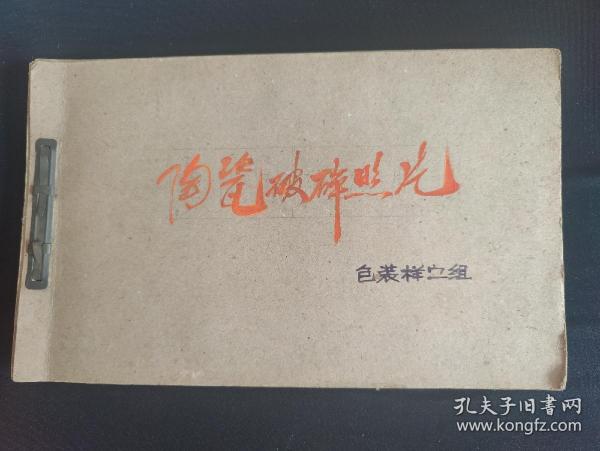 陶瓷破碎照片
包装样宀组
孔夫子旧书网
www.kongfz.com